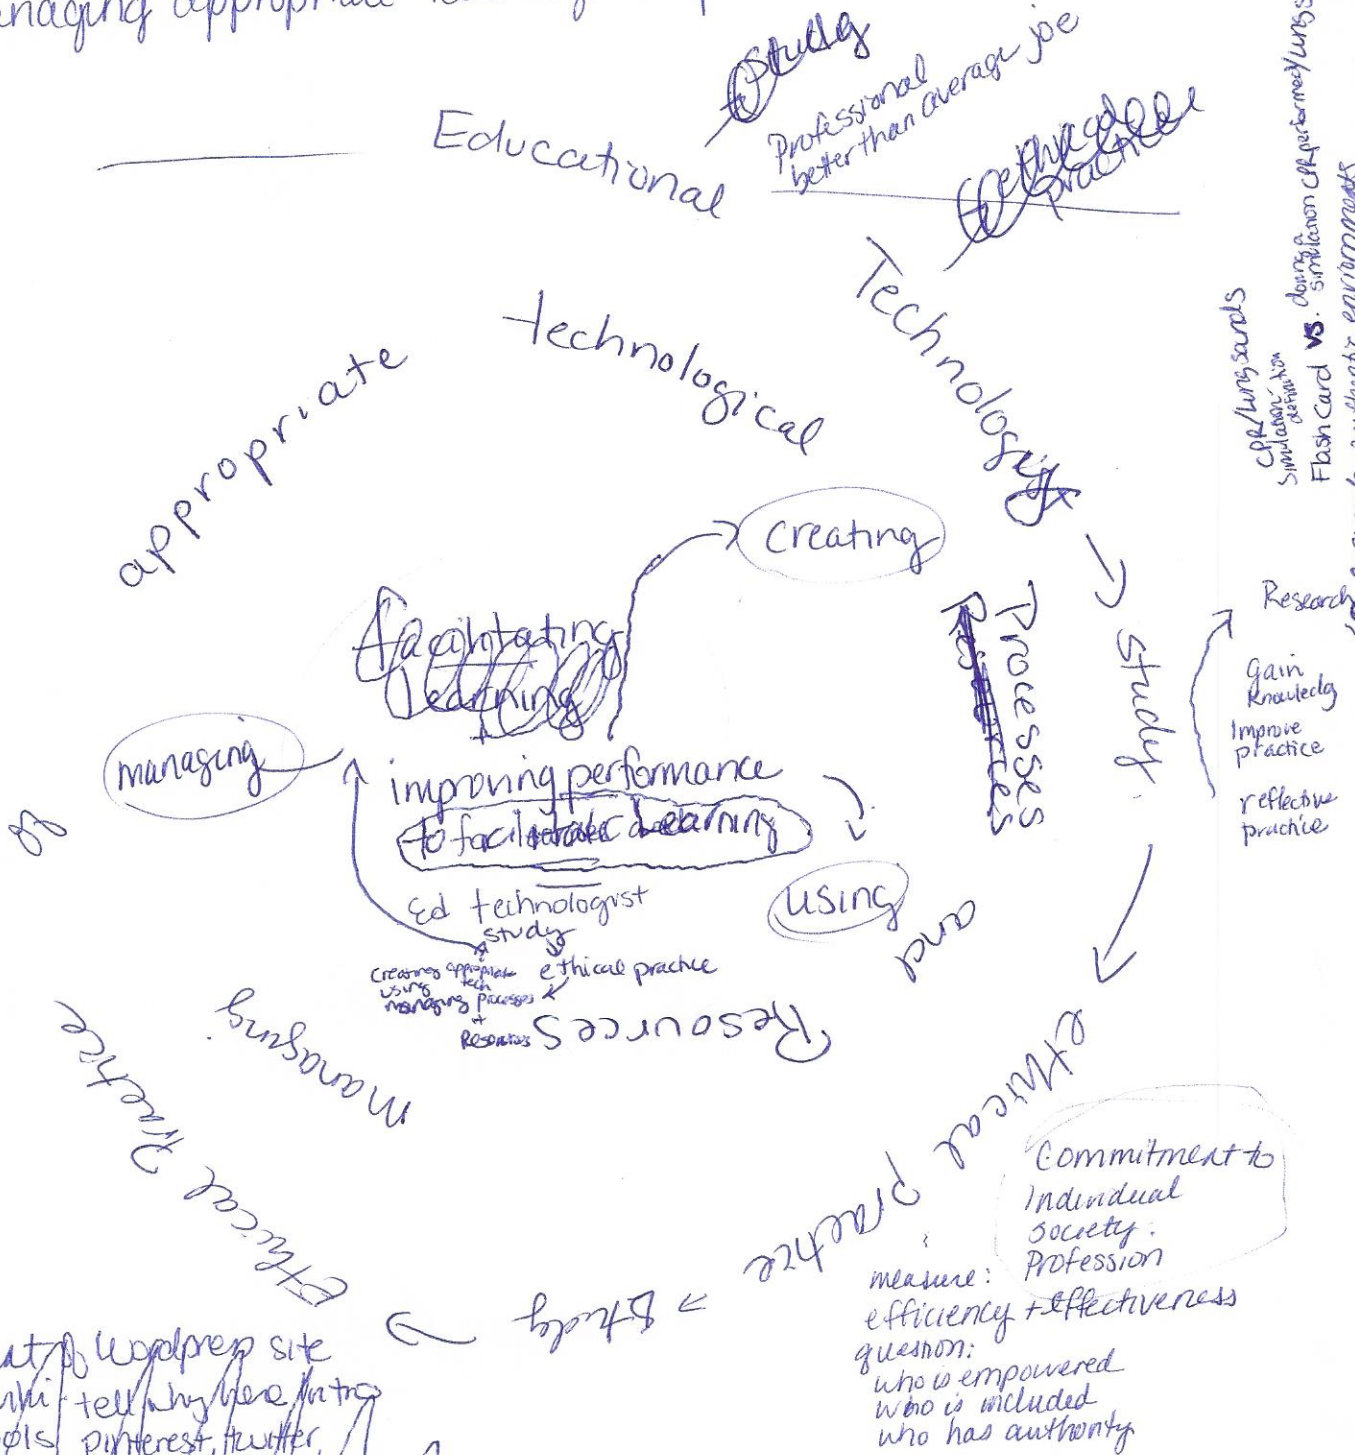 managing appropriate
study
Professional
better than average joe
ethical
practice
Educational
Technology
technological
appropriate
CPR/lung sounds
simulation
definition
Flash Card vs. doing a
simulation CPR performed/lungs
authentic enviornments
creating
facilitating
learning
Processes
Resources
study
Research
gain
knowledg
Improve
practice
reflective
practice
managing
improving performance
to facilitate Learning
using
and
of
Ed technologist
study
ethical practice
creating appropriate
using tech
managing processes
+
Resources
Resources
managing
ethical Practice
ethical practice
Study
Commitment to
Individual
society
Profession
measure:
efficiency + effectiveness
question:
who is empowered
who is included
who has authority
of Wordpress site
tell why here intro
pinterest, twitter,